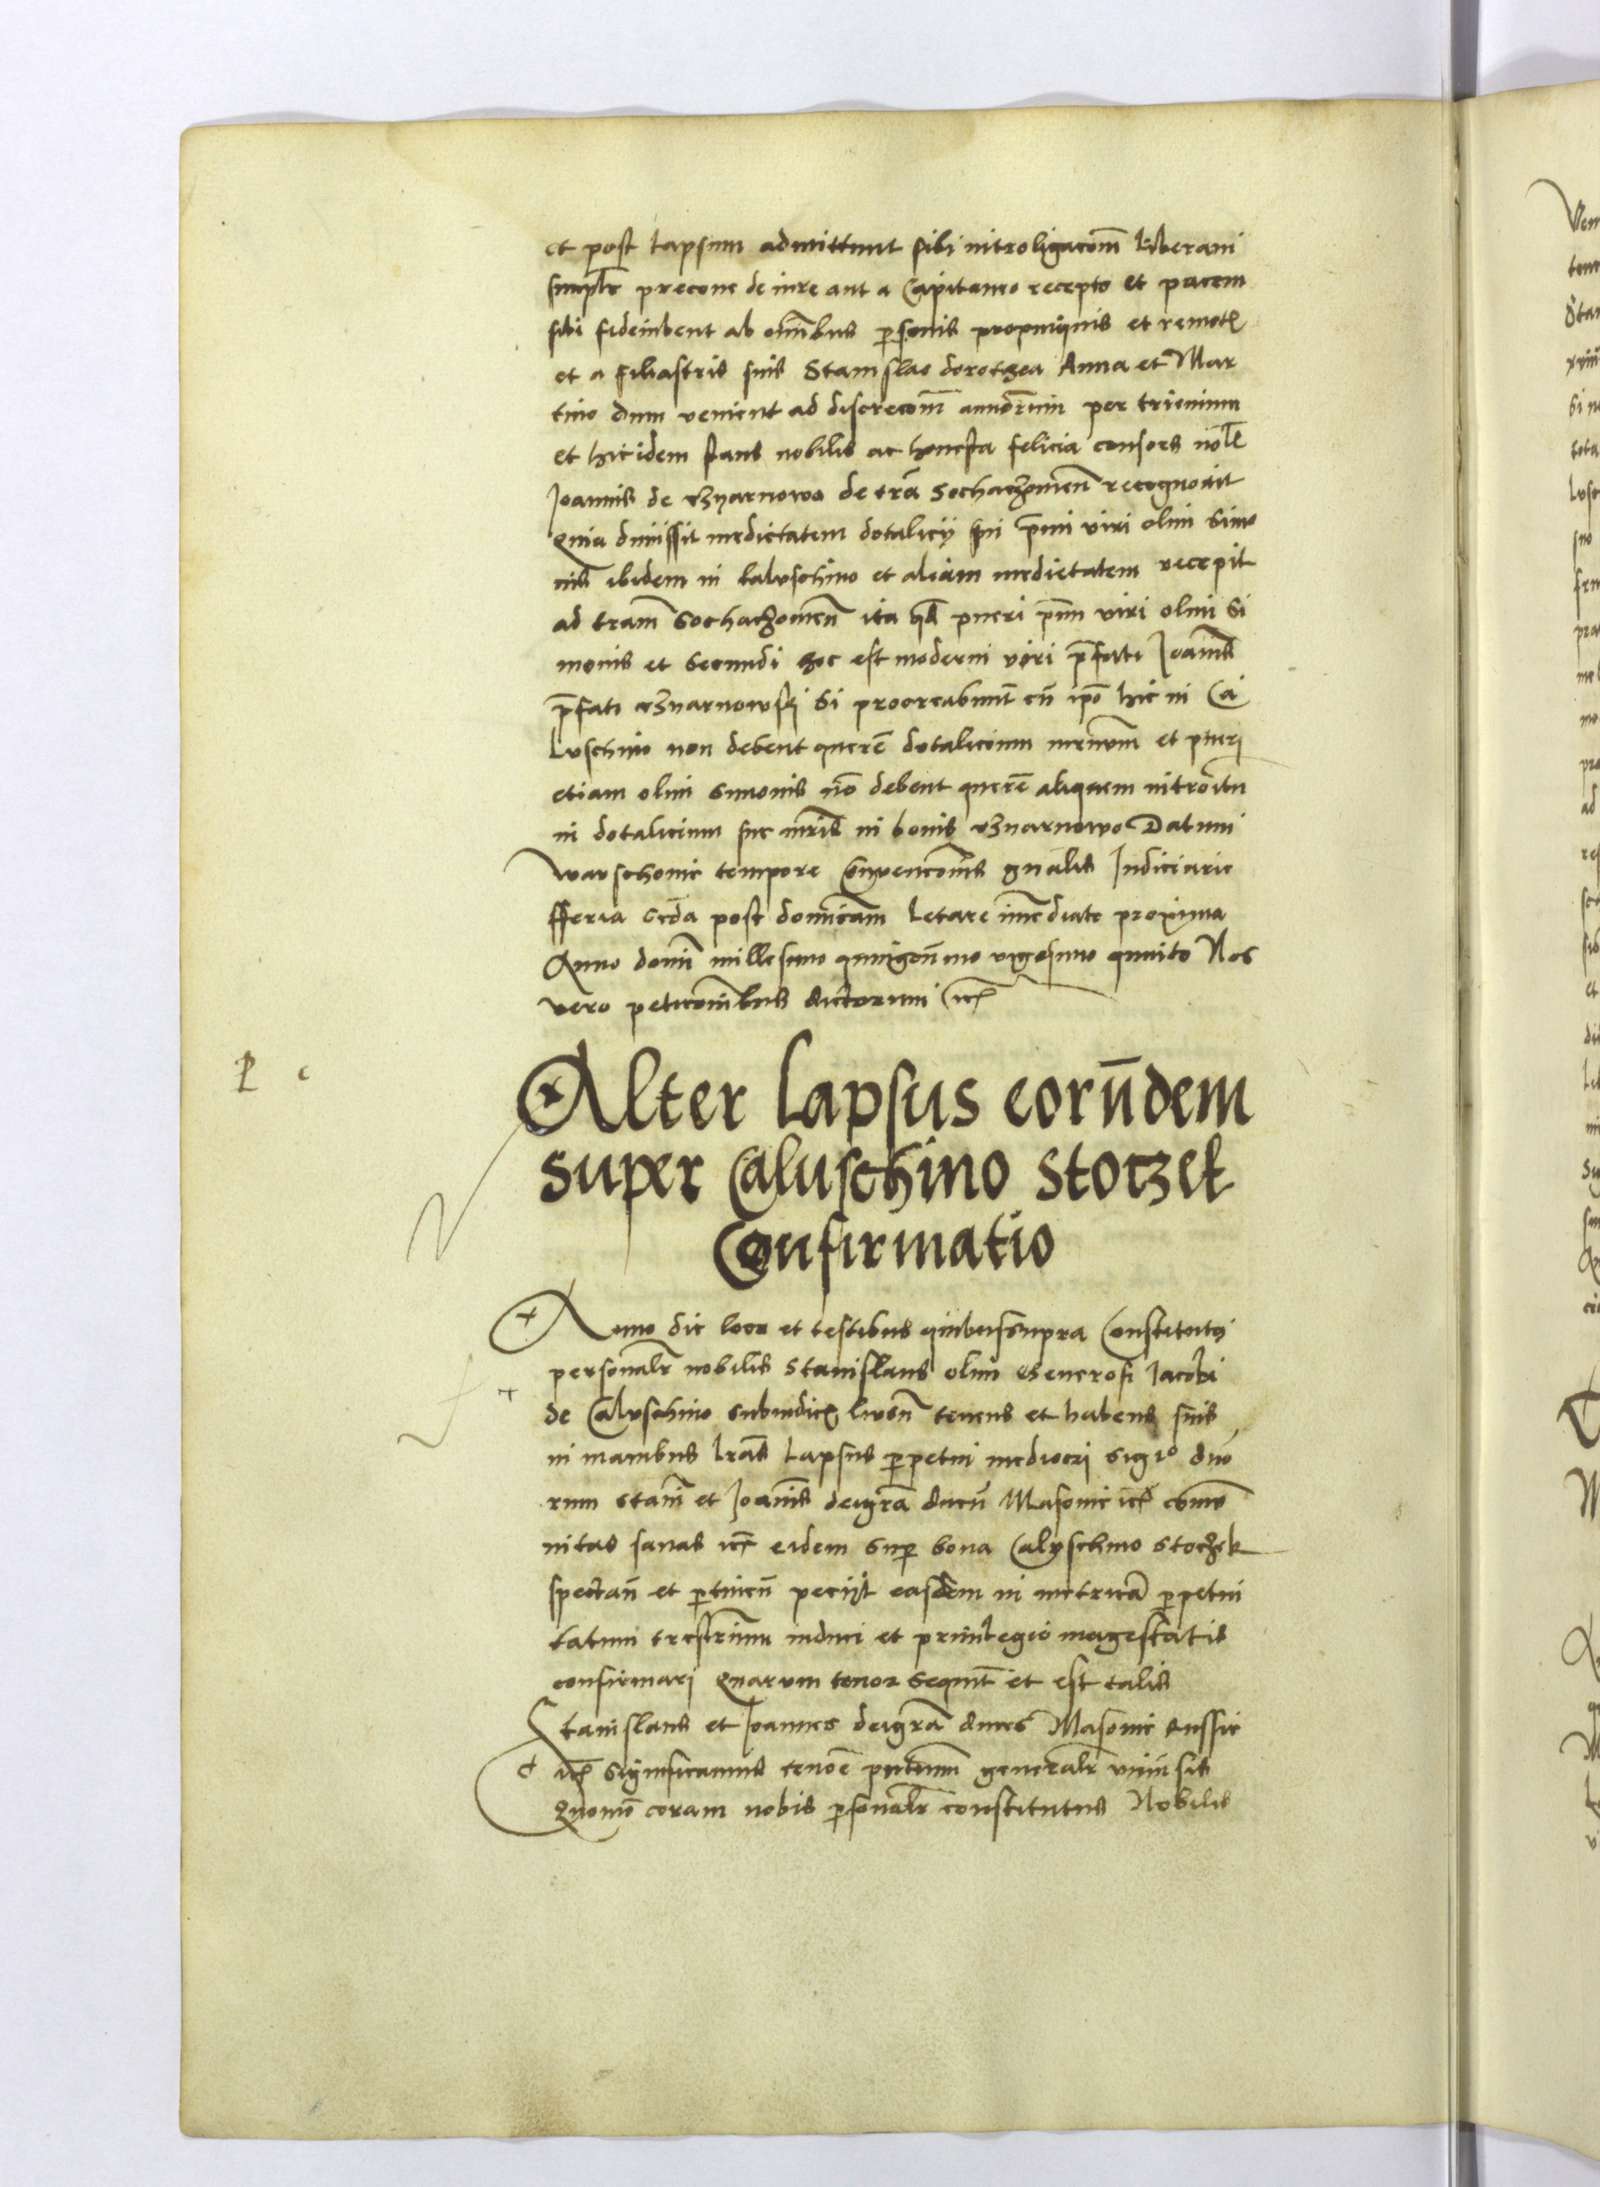 et post lapsum admittunt sibi introligacom̄ liberam
simplr̄ precone de iure aut a Capitaneo recepto et pacem
sibi fideiubent ab om̄ibus personis propinquis et remotꝭ
et a filiastris suis Stanislao dorothea Anna et Mar
tino dum venient ad discrecom̄ annorum per trienium
et hic idem stans nobilis ac honesta felicia consors nobl̄
Joannis de Gznarnowo de trā Sochaczowien̄ recognovit
Quia dimissit medietatem dotalicij sui p̄mi viri olim Simo
nis ibidem in Caluschino et aliam medietatem recepit
ad tram̄ Sochaczowien̄ ita qd̄ pueri p̄mi viri olim Si
monis et secundi hoc est moderni viri p̄fati Joānis
p̄fati Gznarnowski si procreabunt cū ip̄o hic in Ca
luschino non debent querē dotalicium mr̄num et pueri
etiam olim simonis nō debent querē aliquem introitū
in dotalicium sue mr̄is in bonis Gznarnowo Datum
warschovie tempore Convencōnis gn̄alis Judiciarie
fferia scd̄a post domicam̄ letare imediate proxima
Anno domī millesimo quingenmo vigesimo quinto Nos
vero peticonibus dictorum ꝛcꝭ
P c
Alter lapsus eorūdem
super Caluschino Stoczek
Confirmatio
Anno die loco et testibus quibus supra Constitutꝭ
personalr̄ nobilis Stanislaus olim Generosi Jacobi
de Caluschino subiudicꝭ livēn̄ tenens et habens suis
in manibus lrās lapsus p̱petui mediocri sigło duo
rum stanī et Joanis deigrā ducū Masovie ꝛcꝭ com̄u
nitas sanas ꝛcꝭ eidem sup̱ bona Caluschino Stoczek
spectan̄ et p̱tinen̄ peciit easdem in metricā p̱petui
tatum trestrium induci et privilegio magestatis
confirmari Quarum tenor sequit̄ et est talis
Stanislaus et Joannes deigrā duces Masovie Russie
ꝛcꝭ significamus tenorē pn̄tium generalr̄ univ̄sis
Quomō coram nobis p̱sonalr̄ constitutus Nobilis